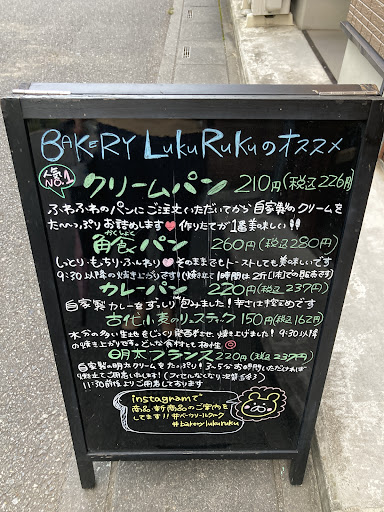 BAKERY LukuRukuのオススメ
人気NO.1
クリームパン 210円(税込226円)
ふわふわのパンにご注文いただいてから自家製のクリームを
たーっぷりお詰めします♥作りたてが1番美味しい!!
かくしょく
角食パン 260円(税込280円)
しっとり・もっちり・ふんわり♥そのままでもトーストしても美味しいです
9:30以降の焼き上がりです!(焼き立て1時間は2斤(1本)での販売です)
カレーパン 220円(税込237円)
自家製カレーをずっしり包みました!辛さは控えめです
古代小麦のリュスティック 150円(税込162円)
水分の多い生地をじっくり発酵させ、焼き上げました!9:30以降
の焼き上がりです。どんな食材とも相性◎
明太フランス 220円(税込237円)
自家製の明太クリームをたっぷり!3~5分お時間いただければ
11:30前後よりご用意しております
instagramで
商品・新商品のご案内を
してます!!#ベーカリールクルク
#bakerylukuruku